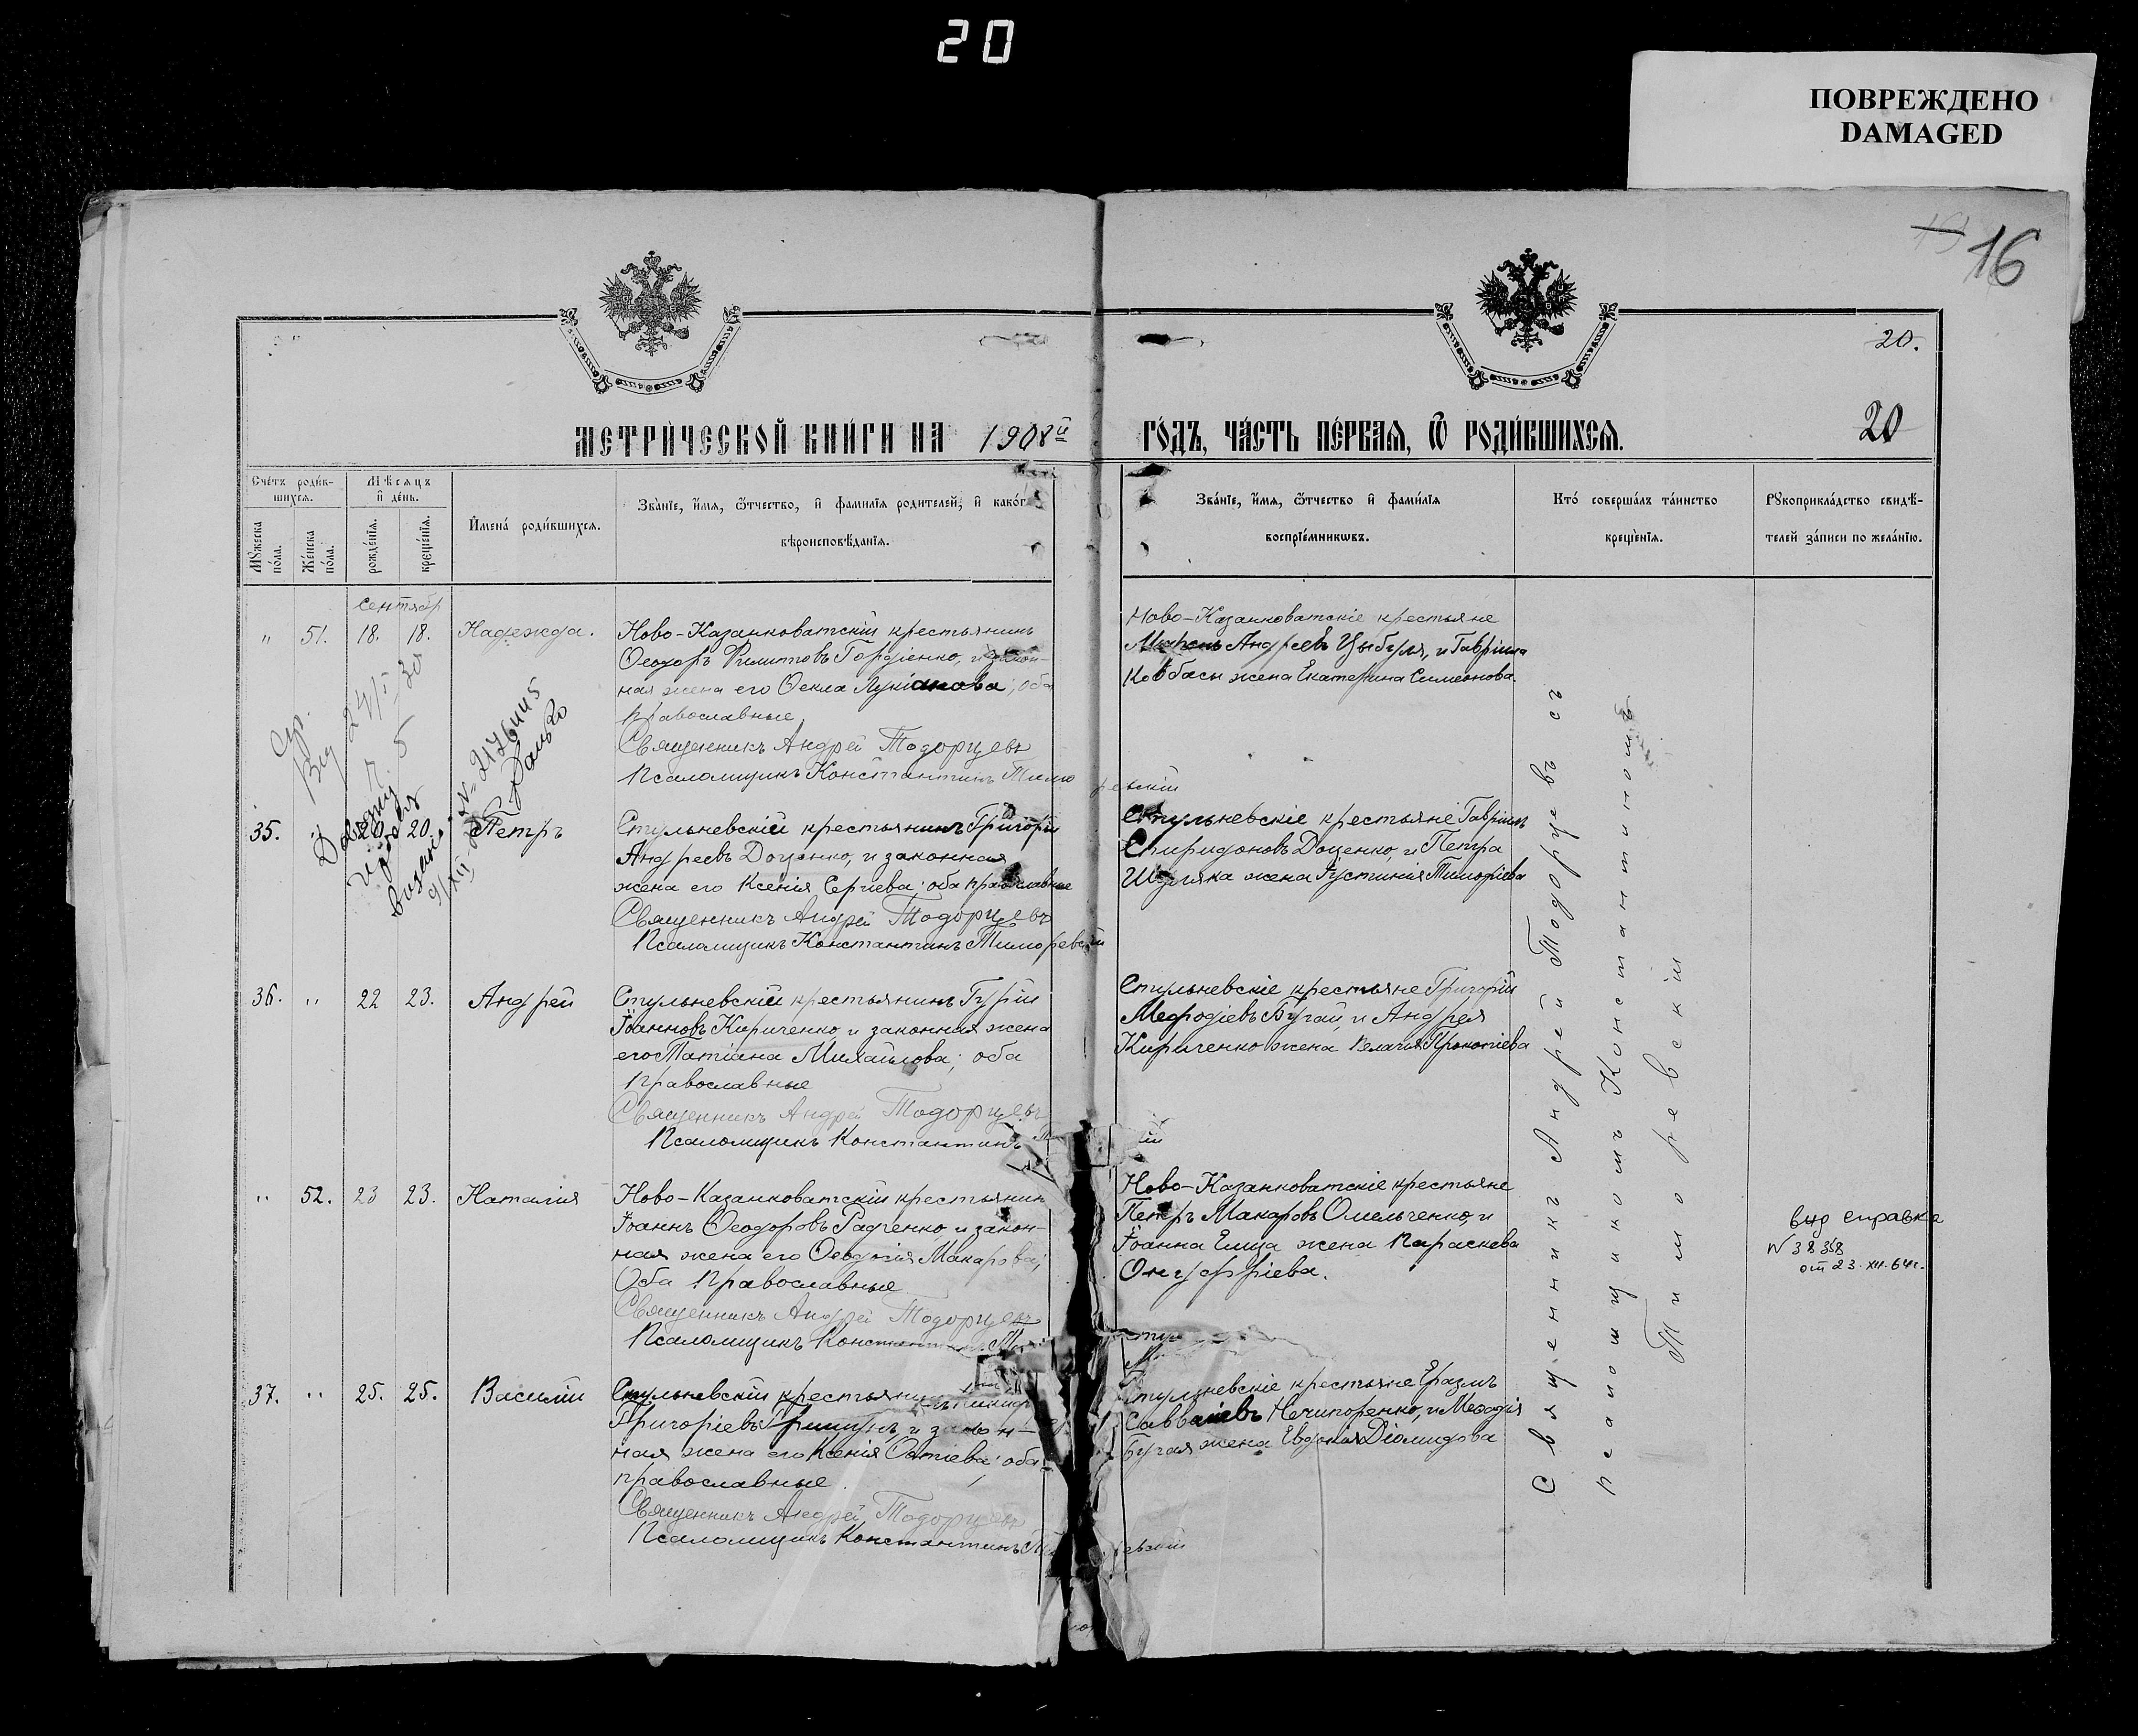 20
ПОВРЕЖДЕНО
DAMAGED
16
20.
20
МЕТРИЧЕСКОЙ КНИГИ НА 1908й ГОДЪ, ЧАСТЬ ПЕРВАЯ, Ѿ РОДИВШИХСЯ.
Счетъ родив-
шихся.
Мѣсяцъ
и день.
Мꙋжеска
пола.
Женска
пола.
рожденія.
крещенія.
Имена родившихся.
Званіе, имя, ѿчество, и фамилія родителей, и каког
вѣроисповѣданія.
Званіе, имя, ѿчество и фамилія
воспріемникѡвъ.
Кто совершалъ таинство
крещенія.
Рꙋкоприкладство свидѣ-
телей записи по желанію.
сентябр
" 51. 18. 18. Надежда.
Ново-Казанковатскій крестьянинъ
Ѳеодоръ Филипповъ Гордіенко, и закон-
ная жена его Ѳекла Лукіанова; оба
православные
Священникъ Андрей Тодорцевъ
Псаломщикъ Константинъ Тиморевскій
Ново-Казанковатскіе крестьяне
Андреевъ Цыбуля, и Гавріила
Ковбасы жена Екатерина Симеонова.
35. " 20. 20. Петръ
Стульневскій крестьянинъ Григорій
Андреевъ Доценко, и законная
жена его Ксенія Сергіева; оба православные
Священникъ Андрей Тодорцевъ
Псаломщикъ Константинъ Тиморевскій
Стульневскіе крестьяне Гавріилъ
Спиридоновъ Доценко, и Петра
жена Іустинія
36. " 22 23. Андрей
Стульневскій крестьянинъ Гурій
Іоанновъ Кириченко и законная жена
его Татіана Михайлова; оба
православные
Священникъ Андрей Тодорцевъ
Псаломщикъ Константинъ
Стульневскіе крестьяне Григорій
Меѳодіевъ Бугай, и Андрея
Кириченко жена Пелагія Прокопіева
" 52. 23 23. Наталія
Ново-Казанковатскій крестьянин
Іоаннъ Ѳеодоровъ Радченко и закон-
ная жена его Ѳеодосія Макарова;
Оба православные
Священникъ Андрей Тодорцевъ
Псаломщикъ
Ново-Казанковатскіе крестьяне
Петръ Макаровъ Омельченко, и
Іоанна жена Параскева
Онуфріева.
выд справка
N 38358
от 23.XII.64г.
37. " 25. 25. Василій
Стульневскій крестьянинъ
Григоріевъ и закон-
ная жена его Ксенія; оба
православные.
Священникъ Андрей Тодорцевъ
Псаломщикъ Константинъ
Стульневскіе крестьяне Еразмъ
Савваіевъ Нечипоренко, и Меѳодія
Бугая жена Евдокія Діомидова
Священникъ Андрей Тодорцевъ съ
псаломщикомъ Константиномъ
Тиморевскій